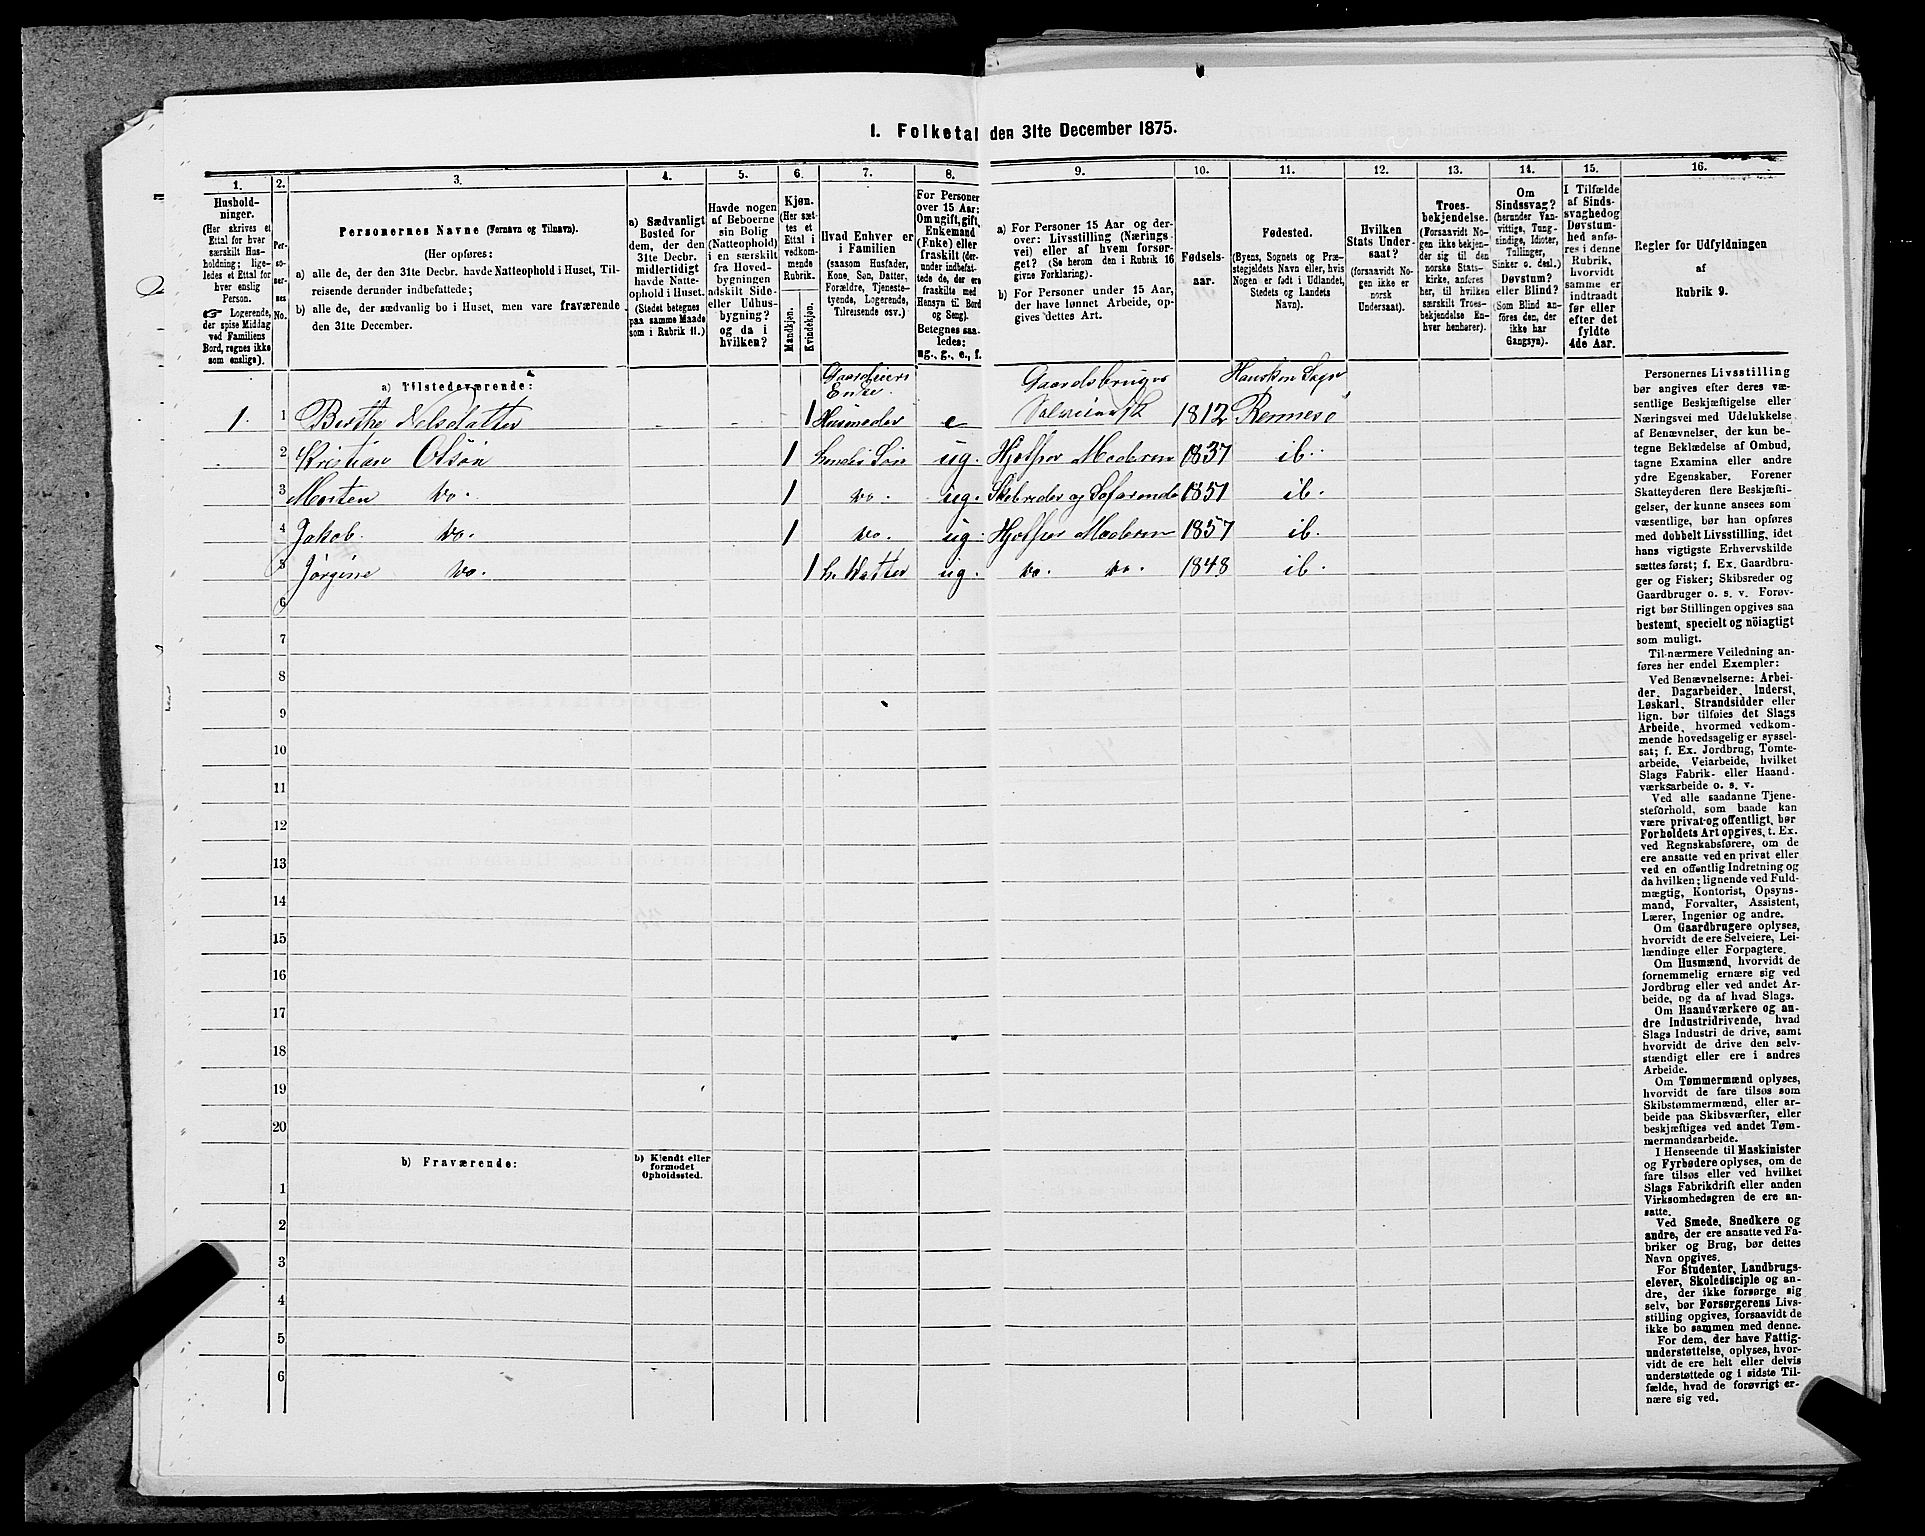 I. Folketal den 31te December 1875.
1. 2. 3. 4. 5. 6. 7. 8. 9. 10. 11. 12. 13. 14. 15. 16.
Husholdninger.
(Her skrives et
Ettal for hver
særskilt Husholdning;
ligeledes et Ettal for
hver enslig
Person.
☞ Logerende,
der spise Middag
ved Familiens
Bord, regnes ikke
som enslige).
Personernes No.
Personernes Navne (Fornavn og Tilnavn).
(Her opføres:
a) alle de, der den 31te Decbr. havde Natteophold i Huset, Tilreisende
derunder indbefattede;
b) alle de, der sædvanlig bo i Huset, men vare fraværende
den 31te December.
a) Sædvanligt
Bosted for
dem, der den
31te Decbr.
midlertidigt
havde Natteophold
i Huset.
(Stedet betegnes
paa samme Maade
som i Rubrik 11.)
Havde nogen
af Beboerne
sin Bolig
(Natteophold)
i en særskilt
fra Hovedbygningen
adskilt Side-
eller Udhusbygning?
og da i
hvilken?
Kjøn.
(Her sættes
et
Ettal i
vedkommende
Rubrik.
Mandkjøn.
Kvindekjøn.
Hvad Enhver er
i Familien
(saasom Husfader,
Kone, Søn, Datter,
Forældre, Tjenestetyende,
Logerende,
Tilreisende osv.)
For Personer
over 15 Aar:
Om ugift, gift,
Enkemand
(Enke) eller
fraskilt (derunder
indbefattede
de, der ere
fraskilte med
Hensyn til Bord
og Seng).
Betegnes saaledes:
ug., g., e., f.
a) For Personer 15 Aar og derover:
Livsstilling (Næringsvei)
eller af hvem forsørget?
(Se herom den i Rubrik 16
givne Forklaring).
b) For Personer under 15 Aar,
der have lønnet Arbeide, opgives
dettes Art.
Fødselsaar.
Fødested.
(Byens, Sognets og Præstegjeldets
Navn eller, hvis
Nogen er født i Udlandet,
Stedets og Landets
Navn).
Hvilken
Stats Undersaat?
(forsaavidt Nogen
ikke er
norsk
Undersaat).
Troesbekjendelse.
(Forsaavidt Nogen
ikke bekjender
sig til den
norske Statskirke,
anføres
her, til hvilken
særskilt Troesbekjendelse
Enhver
henhører).
Om
Sindssvag?
(herunder Vanvittige,
Tungsindige,
Idioter,
Tullinger,
Sinker o. desl.)
Døvstum?
eller Blind?
(Som Blind anføres
den, der
ikke har
Gangsyn).
I Tilfælde
af Sindssvaghed
og
Døvstumhed
anføres
i denne
Rubrik,
hvorvidt
samme er
indtraadt
før eller
efter det
fyldte
4de Aar.
Regler for Udfyldningen
af
Rubrik 9.
a) Tilstedeværende:
1. 1 Berthe Nelsdatter 1 Gaardeiers Enke. Husmoder e Gaardsbruger Selveiersk 1812 Hausken Sogn Rennesø
2 Kristian Olsøn 1 hendes Søn ug. Hjelper Moderen 1837 ib.
3 Morten Do. 1 Do. ug. Skibsreder og Søfarende 1851 ib.
4 Jakob Do. 1 Do. ug. Hjelper Moderen 1857 ib.
5 Jørgine Do. 1 h. Datter ug. Do. Do. 1848 ib.
6
7
8
9
10
11
12
13
14
15
16
17
18
19
20
b) Fraværende:
b) Kjendt eller
formodet
Opholdssted.
1
2
3
4
5
6
Personernes Livsstilling
bør angives efter deres væsentlige
Beskjæftigelse eller
Næringsvei med Udelukkelse
af Benævnelser, der kun betegne
Beklædelse af Ombud,
tagne Examina eller andre
ydre Egenskaber. Forener
Skatteyderen flere Beskjæftigelser,
der kunne ansees som
væsentlige, bør han opføres
med dobbelt Livsstilling, idet
hans vigtigste Erhvervskilde
sættes først; f. Ex. Gaardbruger
og Fisker; Skibsreder og
Gaardbruger o. s. v. Forøvrigt
bør Stillingen opgives saa
bestemt, specielt og nöiagtigt
som muligt.
Til nærmere Veiledning anføres
her endel Exempler:
Ved Benævnelserne: Arbeider,
Dagarbeider, Inderst,
Løskarl, Strandsidder eller
lign. bør tilføies det Slags
Arbeide, hvormed vedkommende
hovedsagelig er sysselsat;
f. Ex. Jordbrug, Tomtearbeide,
Veiarbeide, hvilket
Slags Fabrik- eller Haandværksarbeide
o. s. v.
Ved alle saadanne Tjenesteforhold,
som baade kan
være privat og offentligt, bør
Forholdets Art opgives, t. Ex.
ved Regnskabsførere, om de
ere ansatte ved en privat eller
ved en offentlig Indretning og
da hvilken; lignende ved Fuldmægtig,
Kontorist, Opsynsmand,
Forvalter, Assistent,
Lærer, Ingeniør og andre.
Om Gaardbrugere oplyses,
hvorvidt de ere Selveiere, Leilændinge
eller Forpagtere.
Om Husmænd, hvorvidt de
fornemmelig ernære sig ved
Jordbrug eller ved andet Arbeide,
og da af hvad Slags.
Om Haandværkere og andre
Industridrivende, hvad
Slags Industri de drive, samt
hvorvidt de drive den selvstændigt
eller ere i andres
Arbeide.
Om Tømmermænd oplyses,
hvorvidt de fare tilsøs som
Skibstømmermænd, eller arbeide
paa Skibsværfter, eller
beskjæftiges ved andet Tømmermandsarbeide.
I Henseende til Maskinister
og Fyrbødere oplyses, om de
fare tilsøs eller ved hvilket
Slags Fabrikdrift eller anden
Virksomhedsgren de ere ansatte.
Ved Smede, Snedkere og
andre, der ere ansatte ved Fabriker
og Brug, bør dettes
Navn opgives.
For Studenter, Landbrugselever,
Skoledisciple og andre,
der ikke forsørge sig
selv, bør Forsørgerens Livsstilling
opgives, forsaavidt de
ikke bo sammen med denne.
For dem, der have Fattigunderstøttelse,
oplyses, hvorvidt
de ere helt eller delvis
understøttede og i sidste Tilfælde,
hvad de forøvrigt ernære
sig ved.